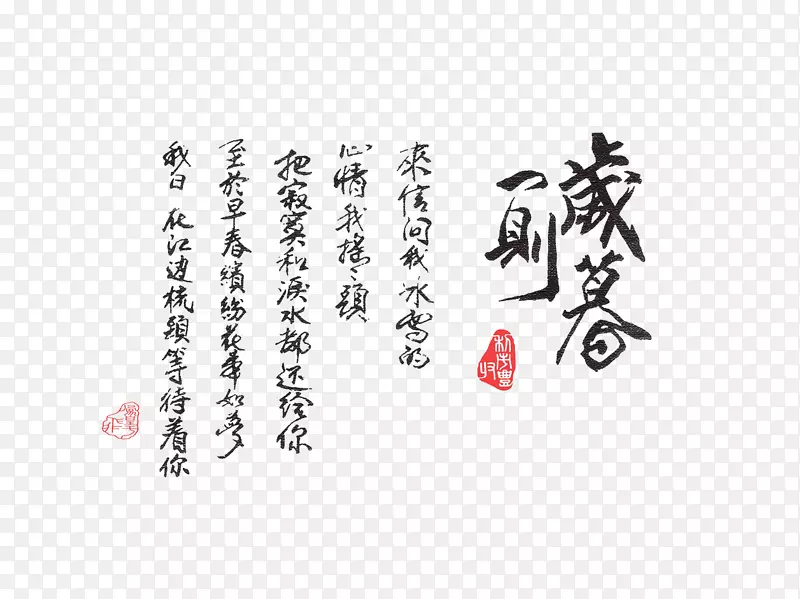 歲暮
一則
來信問我冰雪的
心情我搖〻頭
把寂寞和淚水都还給你
至於早春繽紛花事如夢
我日 在江邊梳頭等待着你